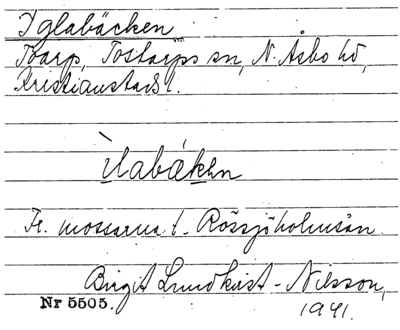 Iglabäcken
Tvarp, Tostarps sn, N. Åsbo hd,
Kristianstads l.
Ìlabäken
Fr. mossarna t. Rössjöholmsån
Birgit Lundkvist-Nilsson,
Nr 5505.
1941.